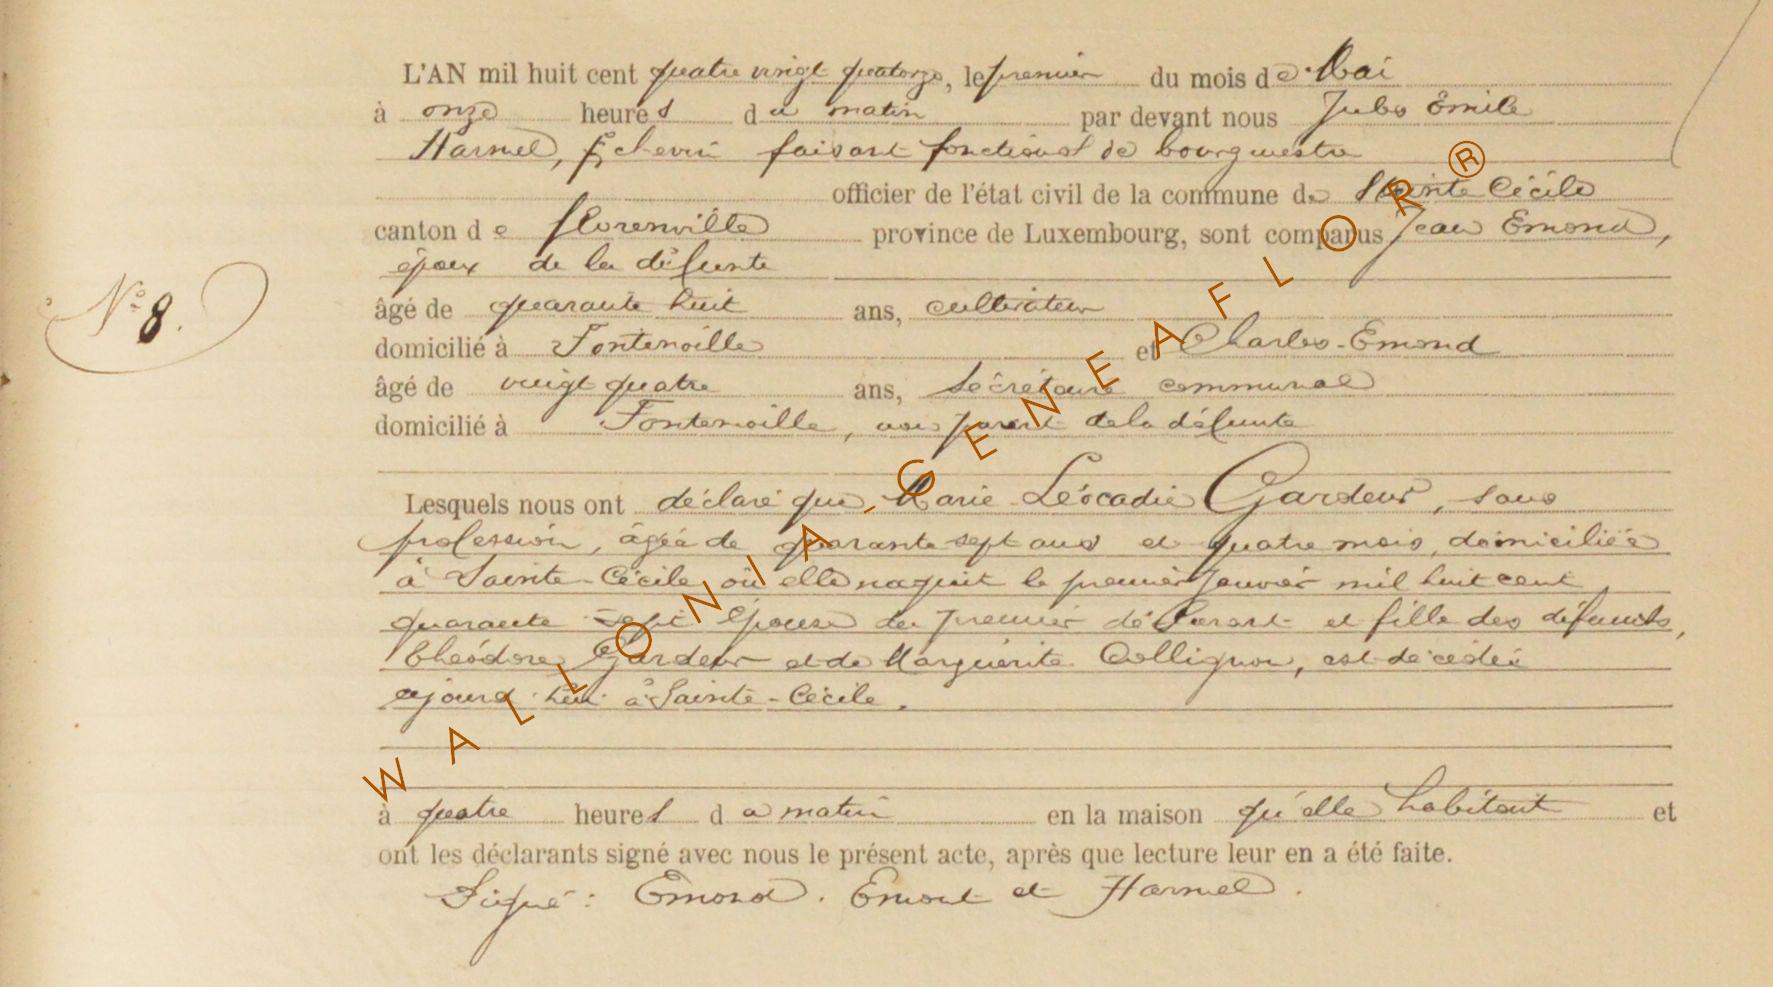 L'AN mil huit cent quatre vingt quatorze, le premier du mois de Mai
à onze heures du matin par devant nous Jules Emile
Harmel, Echevin faisant fonctions de bourgmestre
officier de l'état civil de la commune de Sainte Cécile
canton de Florenville province de Luxembourg, sont comparus Jean Emond,
époux de la défunte
âgé de quarante huit ans, cultivateur
N° 8.
domicilié à Fontenoille et Charles Emond
âgé de vingt quatre ans, Secrétaire communal
domicilié à Fontenoille, non parent de la défunte
Lesquels nous ont déclaré que Marie Léocadie Gardeur, sans
profession, âgée de quarante sept ans et quatre mois, domiciliée
à Sainte-Cécile où elle naquit le premier Janvier mil huit cent
quarante sept épouse du premier déclarant et fille des défunts,
Théodore Gardeur et de Marguerite Collignon, est décédée
ajourd'hui à Sainte-Cécile.
à quatre heures du matin en la maison qu'elle habitait et
ont les déclarants signé avec nous le présent acte, après que lecture leur en a été faite.
Signé : Emond. Emont et Harmel.
WALLONIA-GENEAFLOR®